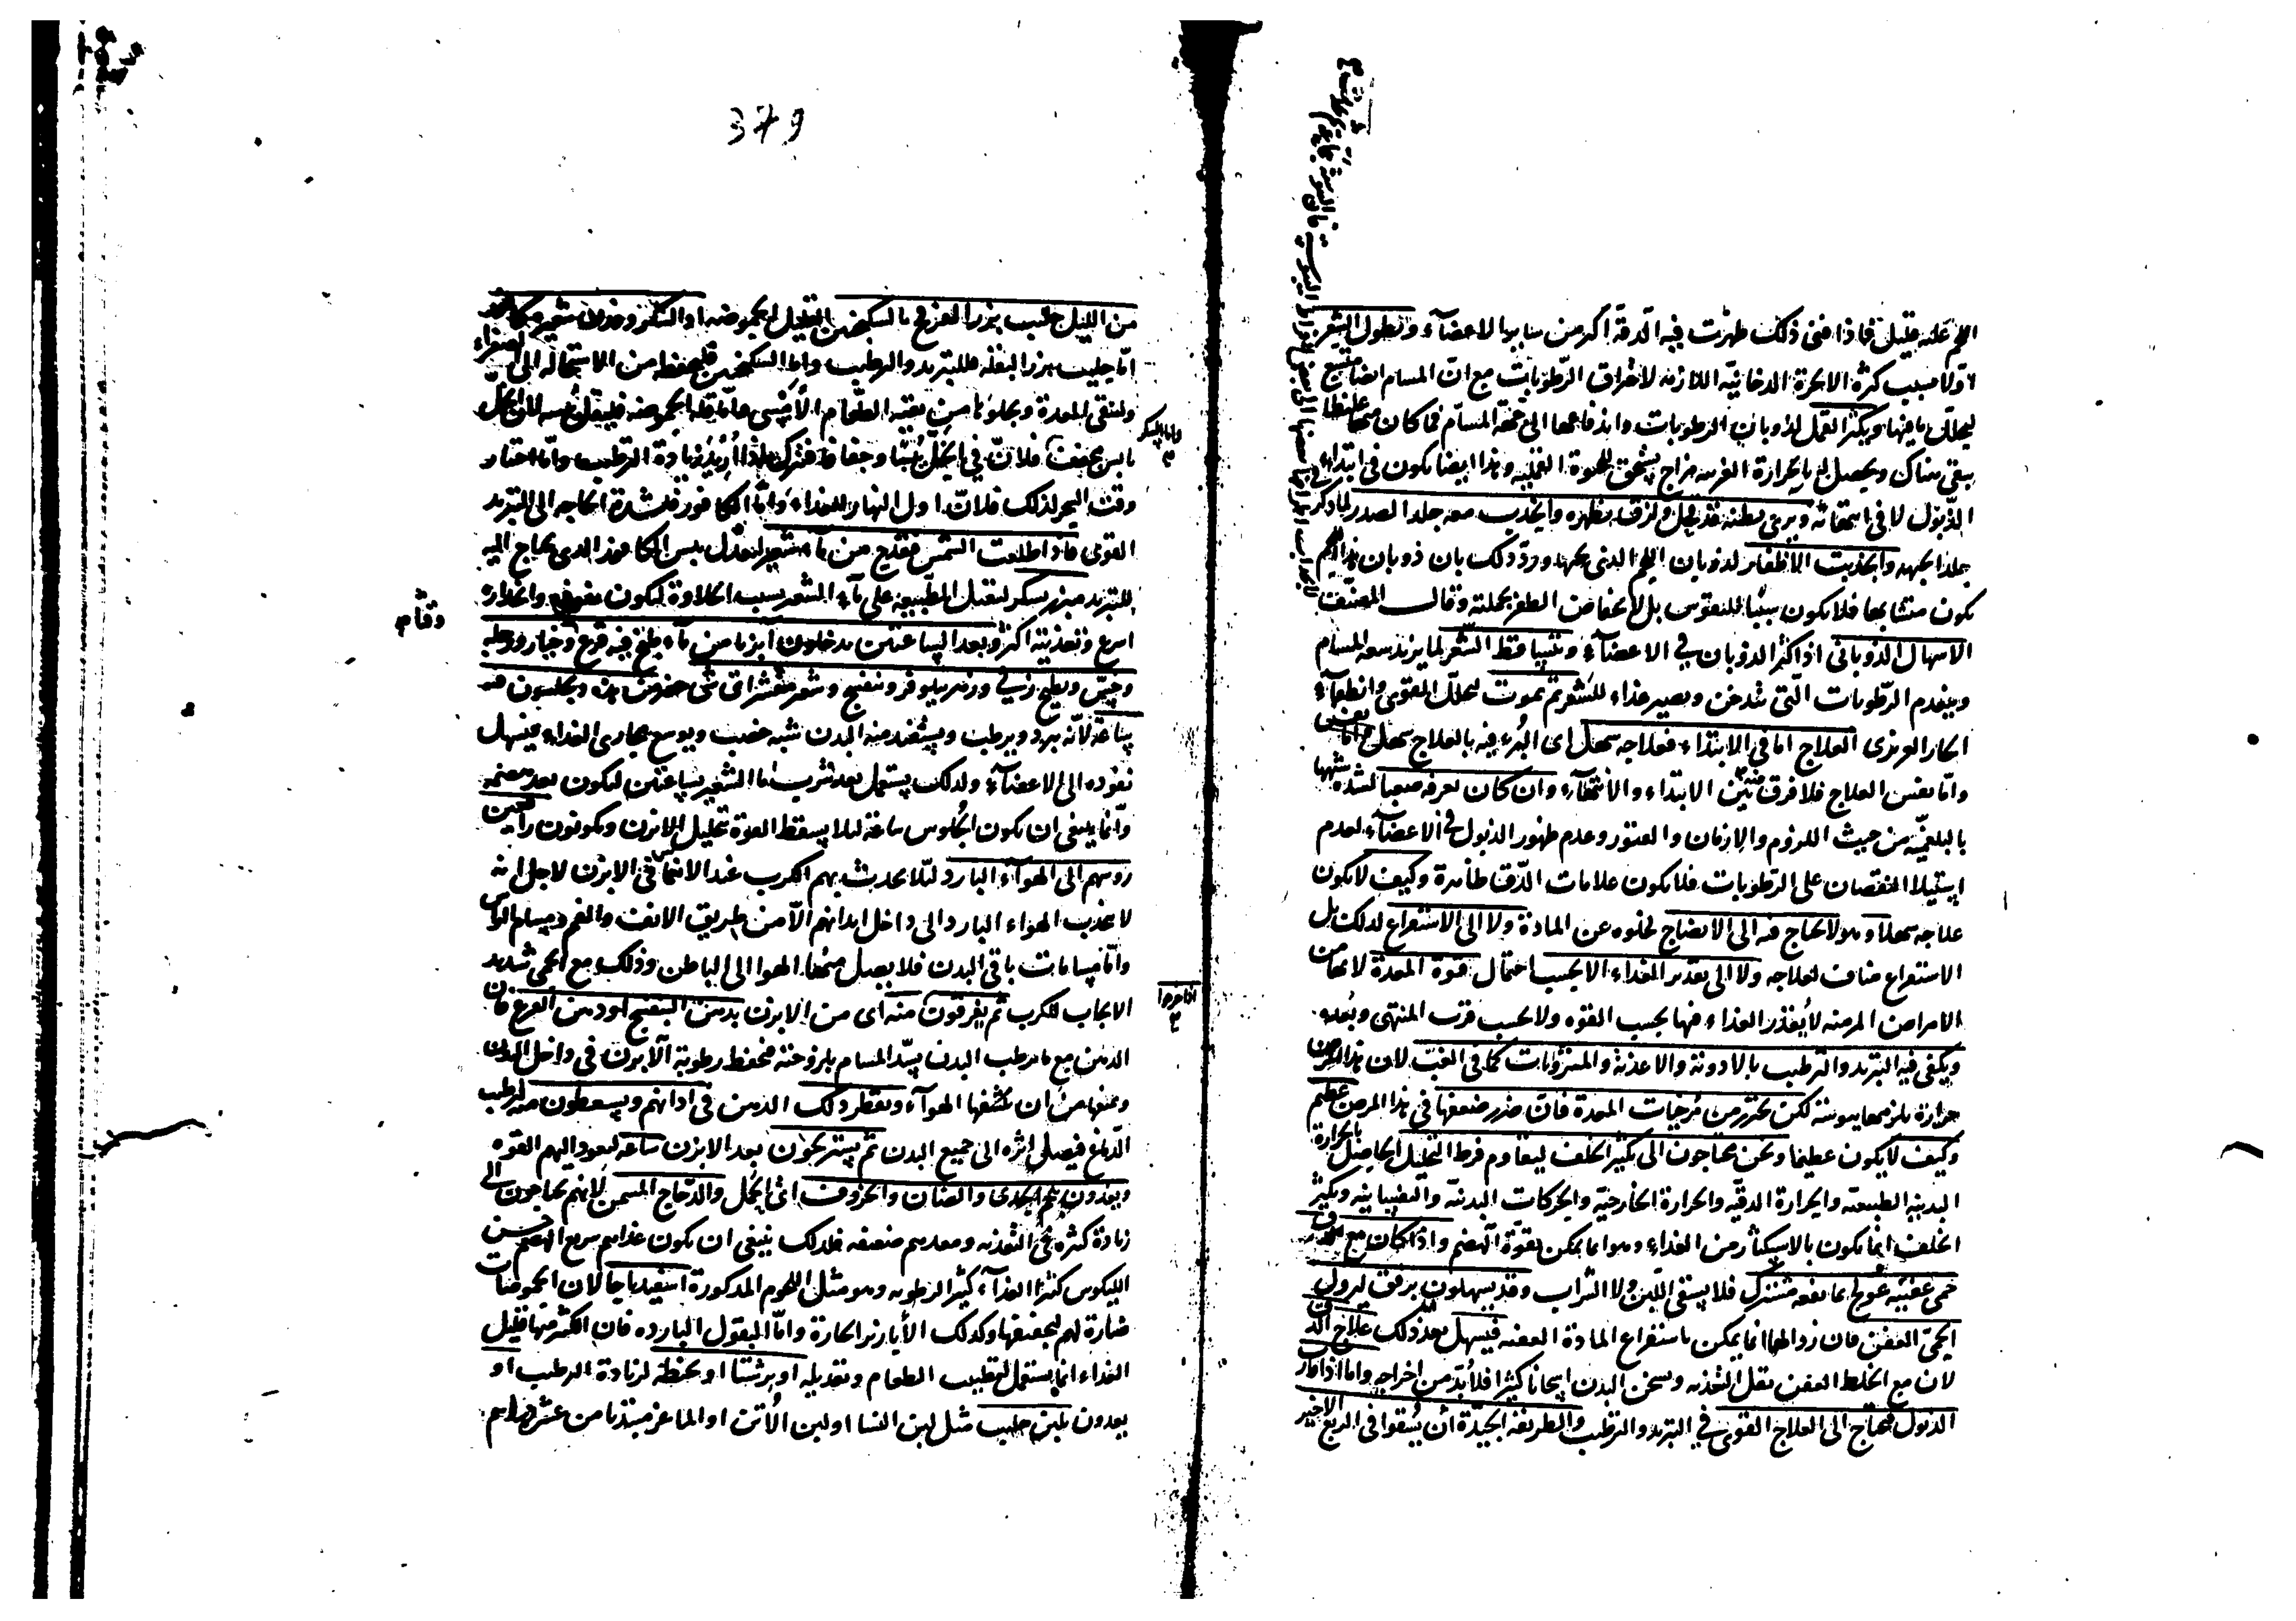 اللحم عليه قليل فاذا فنى ذلك ظهرت فيه الدقة اكثر من سائر الاعضاء ويطول الشعر
اولا بسبب كثرة الابخرة الدخانية اللازمة لاحراق الرطوبات مع ان المسام ايضا متسع
ليحلل ما فيها ويكثر القمل لذوبان الرطوبات واندفاعها الى جهة المسام فما كان منها غليظا
يبقى هناك ويحصل له بالحرارة الغريبة مزاج يستحق للحيوة القملية وهذا ايضا يكون فى ابتداء
الذبول لا فى انتهائه ويرى بطنه قد قحل ولزق بظهره وانجذب معه جلد الصدر لما ذكر
جلد الجبهة وانجذبت الاظفار لذوبان اللحم الذى تحتها ورد ذلك بان ذوبان هذا اللحم
يكون متشابها فلا يكون سببا للتقوس بل لانخفاض الظفر بجملته وقال المصنف
الاسهال الذوبانى اذا كثر الذوبان فى الاعضاء ويتساقط الشعر لما يزيد سعة المسام
وينعدم الرطوبات التى تتدخن ويصير غذاء للشعر ثم يموت لتحلل القوى وانطفاء
الحار الغريزى العلاج اما فى الابتداء فعلاجه سهل اى البرء فيه بالعلاج سهل
واما نفس العلاج فلا فرق فيه بين الابتداء والانتهاء وان كان تعرفه صعبا لشدة شبهها
بالبلغمية من حيث اللزوم والازمان والفتور وعدم ظهور الذبول فى الاعضاء لعدم
استيلاء النقصان على الرطوبات فلا يكون علامات الدق ظاهرة وكيف لا يكون
علاجه سهلا وهو لا يحتاج فيه الى الانضاج لخلوه عن المادة ولا الى الاستفراغ لذلك بل
الاستفراغ مناف لعلاجه ولا الى تقدير الغذاء الا بحسب احتمال قوة المعدة لا كما من
الامراض المزمنة لا يقدر الغذاء فيها بحسب القوة ولا بحسب قرب المنتهى وبعده
ويكفى فيه التبريد والترطيب بالادوية والاغذية والمشروبات كما فى الغب لان هذا المرض
حرارة يلزمها يبوسة لكن يحترز من مرخيات المعدة فان ضرر ضعفها فى هذا المرض عظيم
وكيف لا يكون عظيما ونحن محتاجون الى تكثير الخلف ليقاوم فرط التحليل الحاصل بالحرارة
البدنية الطبيعية والحرارة الدقية والحرارة الخارجية والحركات البدنية والنفسانية وتكثير
الخلف انما يكون بالاستكثار من الغذاء وهو انما يمكن بقوة الهضم واذا كان مع الدق
حمى عفنية عولج بما نفعه مشترك فلا يسقى اللبن ولا الشراب وقد يسهلون برفق ليزول
الحمى العفن فان زوالها انما يمكن باستفراغ المادة العفنة فيسهل بعد ذلك علاج الدق
لان مع الخلط العفن ثقل التغذية ويسخن البدن اسخانا كثيرا فلا بد من اخراجه واما اذا صار
الذبول فيحتاج الى العلاج القوى فى التبريد والترطيب والطريقة الجيدة ان يسقوا فى الربع الاخير
379
من الليل حليب بزر القرع بالسكنجبين القليل الحموضة او السكر
اما حليب بزر البقلة فللتبريد والترطيب واما السكنجبين فليحفظه من الاستحالة الى الصفراء
ولينقى المعدة ويجلوها من بقية الطعام الامسى واما قلة الحموضة فليقل يبسه لان الخل
يابس مجفف فلان فى الخل يبسا وجفافا فترك لذا اريد زيادة الترطيب واما اختار
وقت السحر لذلك فلان اول النهار للغذاء واما الكافور فلشدة الحاجة الى التبريد
القوى فاذا طلعت الشمس فقدح من ماء شعير ليعدل يبس الكافور الذى يحتاج اليه
للتبريد مبزر بسكر لتقبل الطبيعة على ماء الشعير بسبب الحلاوة ليكون نفوذه وانحداره
اسرع وتغذيته اكثر وبعد الساعتين يدخلون آبزنا من ماء طبخ فيه قرع وخيار ورجلة
وخس وبطيخ رقى وزهر نيلوفر وبنفسج وشعير مقشر
ساعة لانه يبرد ويرطب ويستفيد منه البدن شبه خصب ويوسع مجارى الغذاء فيسهل
نفوذه الى الاعضاء ولذلك يستعمل بعد شرب ماء الشعير بساعتين ليكون بعد هضمه
وانما ينبغى ان يكون الجلوس ساعة لئلا يسقط القوة بتحليل الابزن ويكونون رافعين
روسهم الى الهواء البارد لئلا يحدث بهم الكرب عند الانغماس فى الابزن لاجل انه
لا يجذب الهواء البارد الى داخل ابدانهم الا من طريق الانف والفم ومسام الراس
واما مسامات باقى البدن فلا يصل منها الهوا الى الباطن وذلك مع الحمى شديد
الايجاب للكرب ثم يغرقون منه اى من الابزن بدهن البنفسج او دهن القرع فان
الدهن مع ما يرطب البدن يسد المسام بلزوجته فيحفظ رطوبة الابزن فى داخل البدن
ويمنعها من ان ينشفها الهواء ويقطر ذلك الدهن فى اذانهم ويسعطون منه لترطيب
الدماغ فيصل اثره الى جميع البدن ثم يستريحون بعد الابزن ساعة ليعود اليهم القوة
ويغذون بلحم الجدى والضان والخروف اى الحمل والدجاج المسمن لانهم يحتاجون الى
زيادة كثرة فى التغذية ومعدهم ضعيفة فلذلك ينبغى ان يكون غذاهم سريع الهضم حسن
الكيموس كثير الغذاء كثير الرطوبة وهو مثل اللحوم المذكورة اسفيدباجا لان الحموضات
ضارة لهم لتجفيفها وكذلك الأبازير الحارة واما البقول الباردة فان اكثرها قليل
الغذاء انما يستعمل لتطييب الطعام وتعديله او برشتا او بحنطة لزيادة الرطيب او
يغذون بلبن حليب مثل لبن النسا او لبن الاتن او الماعز مبتديا من عشرة دراهم